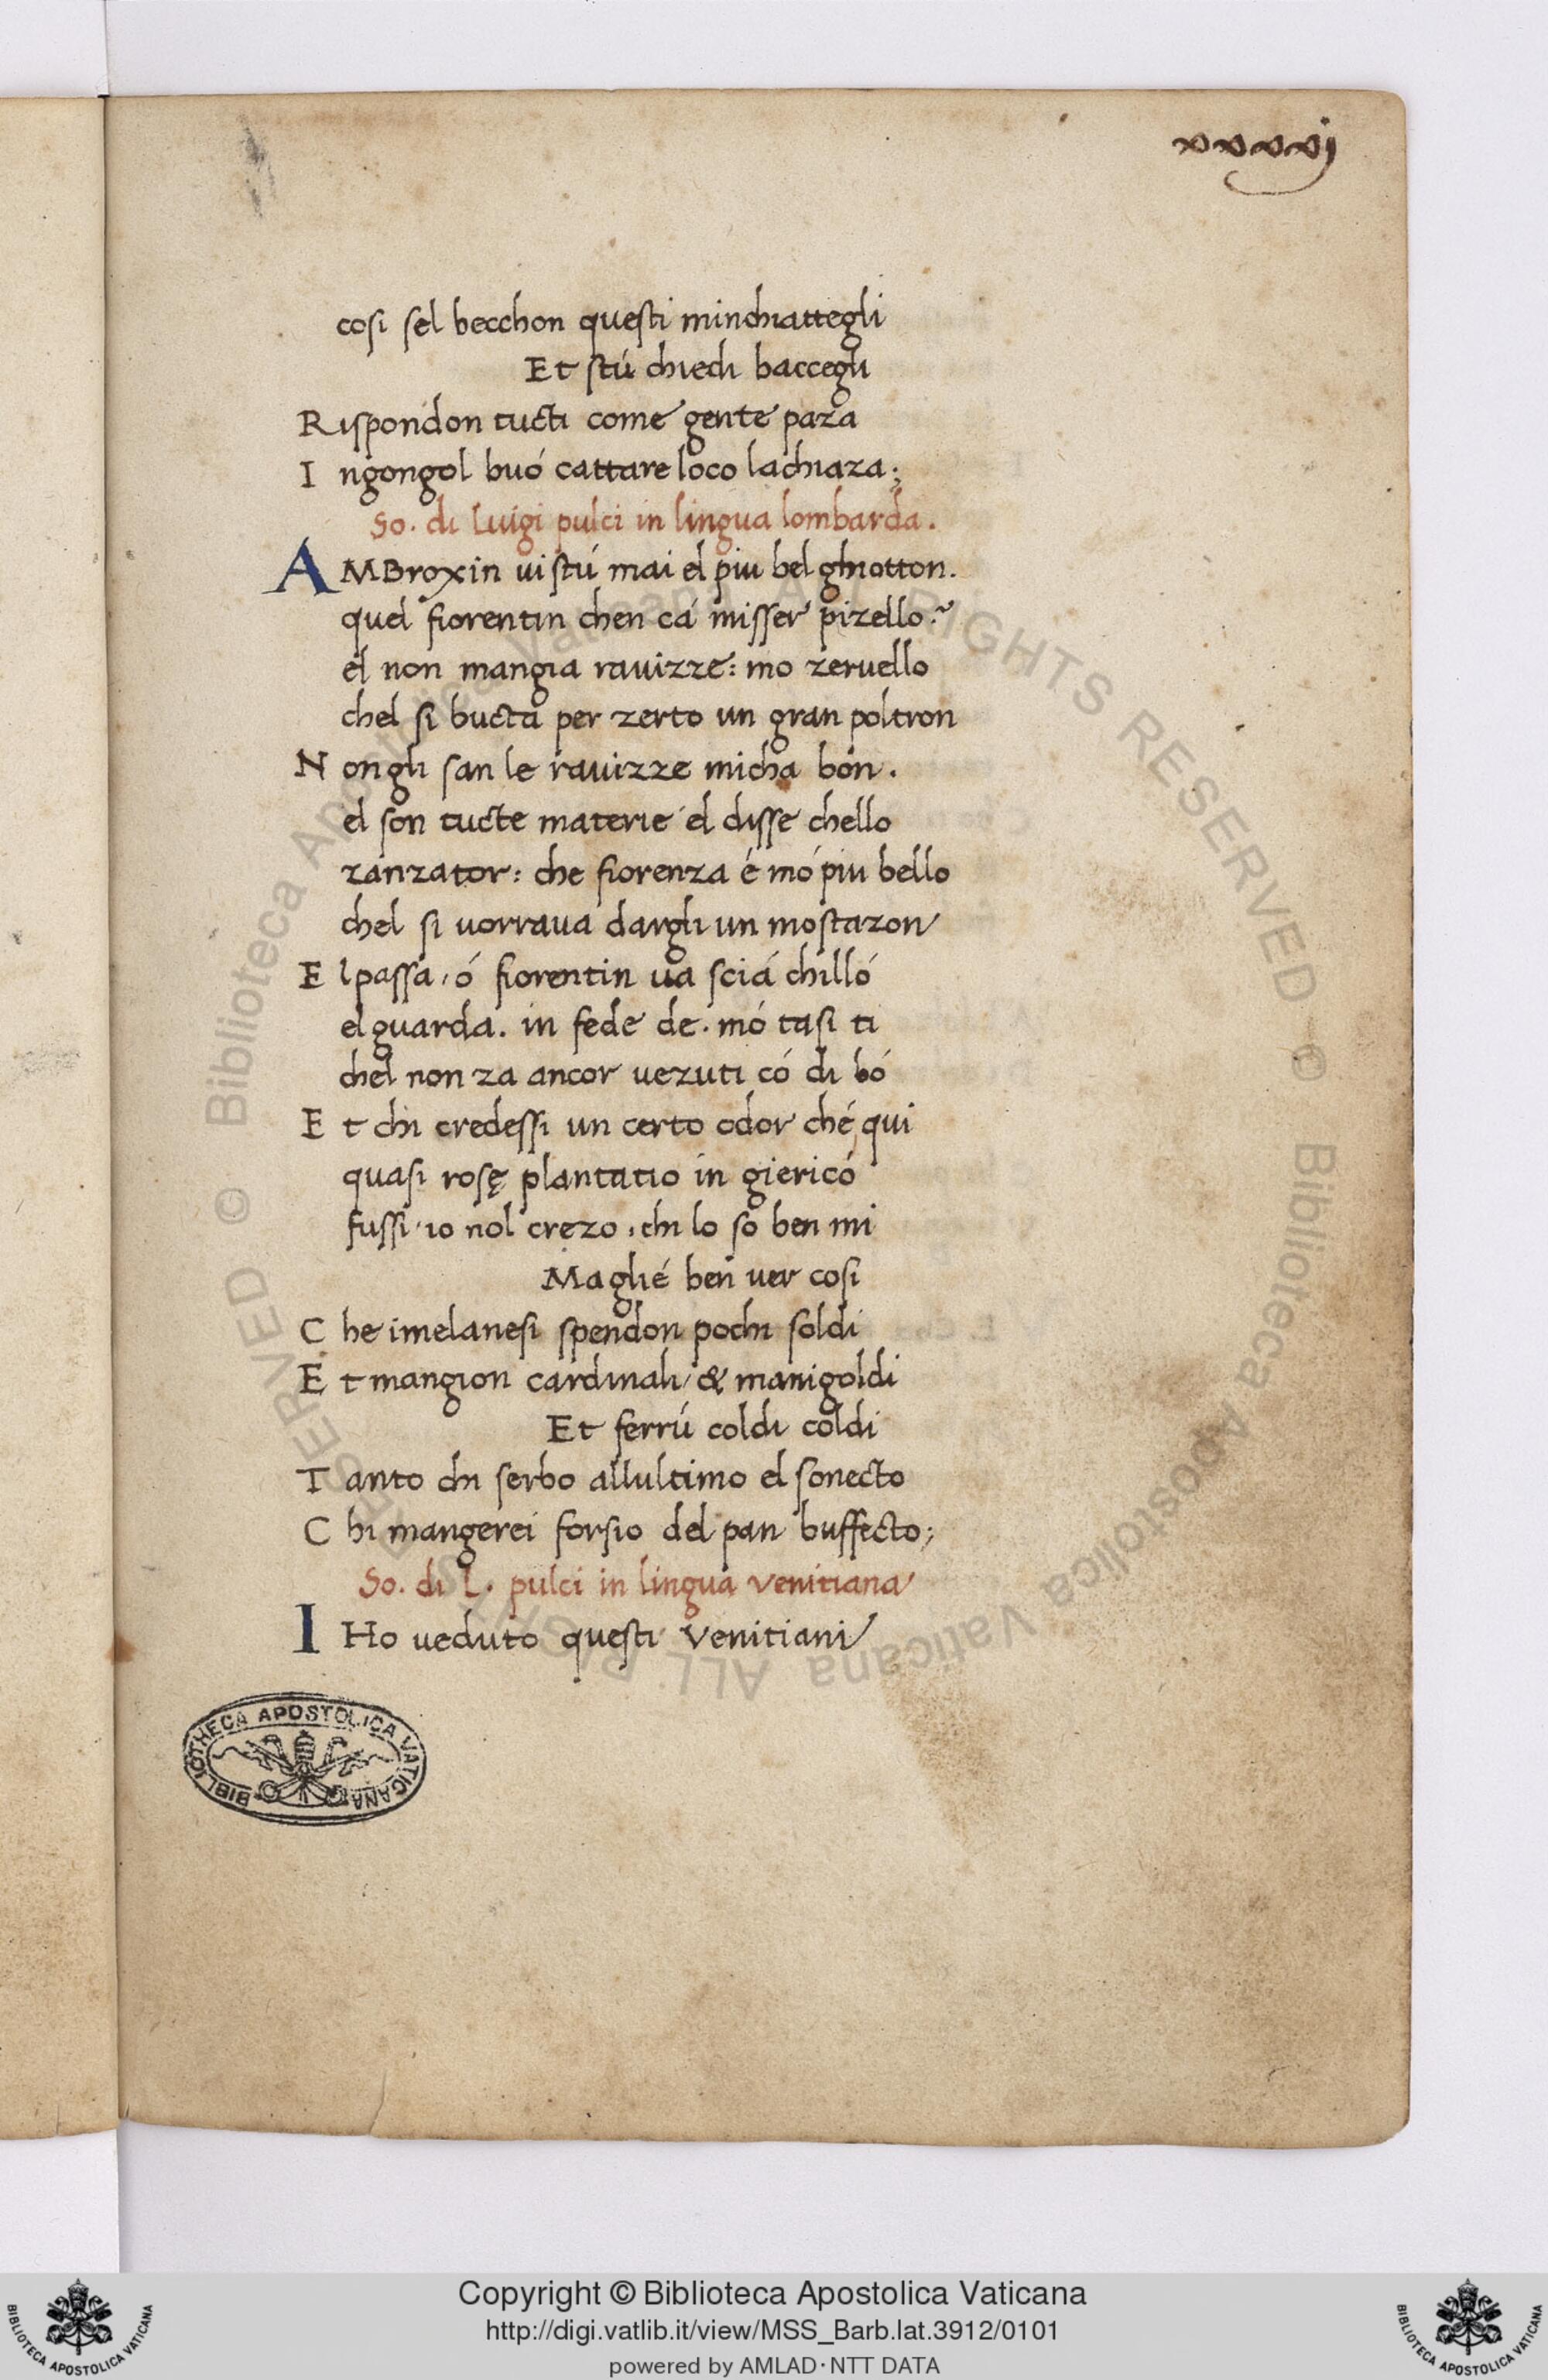 xxxxxj
cosi sel becchon questi minchiattegli
Et stú chiedi baccegli
Rispondon tucti come gente paza
I ngongol buó cattare loco lachiaza;
So. di Luigi pulci in lingua lombarda.
AMBroxin ui stú mai el piu bel ghiotton.
quel fiorentin chen cá misser pizello?
el non mangia rauizze: mo zeruello
chel si bucta per zerto un gran poltron
N ongli san le rauizze micha bon.
el son tucte materie el disse chello
zanzator: che fiorenza é mó piu bello
chel si uorraua dargli un mostazon
E l passa, ó fiorentin ua sciá chilló
el guarda. in fede de. mó tasi ti
chel non za ancor uezuti có di bó
E t chi credessi un certo odor ché qui
quasi rosę plantatio in giericó
fussi, io nol crezo, chi lo so ben mi
Maglié ben uer cosi
C he imelanesi spendon pochi soldi
E t mangion cardinali, & manigoldi
Et ferrú coldi coldi
T anto chi serbo allultimo el sonecto
C hi mangerei forsio del pan buffecto;
So. di L. pulci in lingua venitiana
I Ho ueduto questi Venitiani
BIBLIOTHECA APOSTOLICA VATICANA
© Biblioteca Apostolica Vaticana ALL RIGHTS RESERVED © Biblioteca Apostolica Vaticana ALL RIGHTS RESERVED
Copyright © Biblioteca Apostolica Vaticana
http://digi.vatlib.it/view/MSS_Barb.lat.3912/0101
powered by AMLAD·NTT DATA
BIBLIOTECA APOSTOLICA VATICANA
BIBLIOTECA APOSTOLICA VATICANA